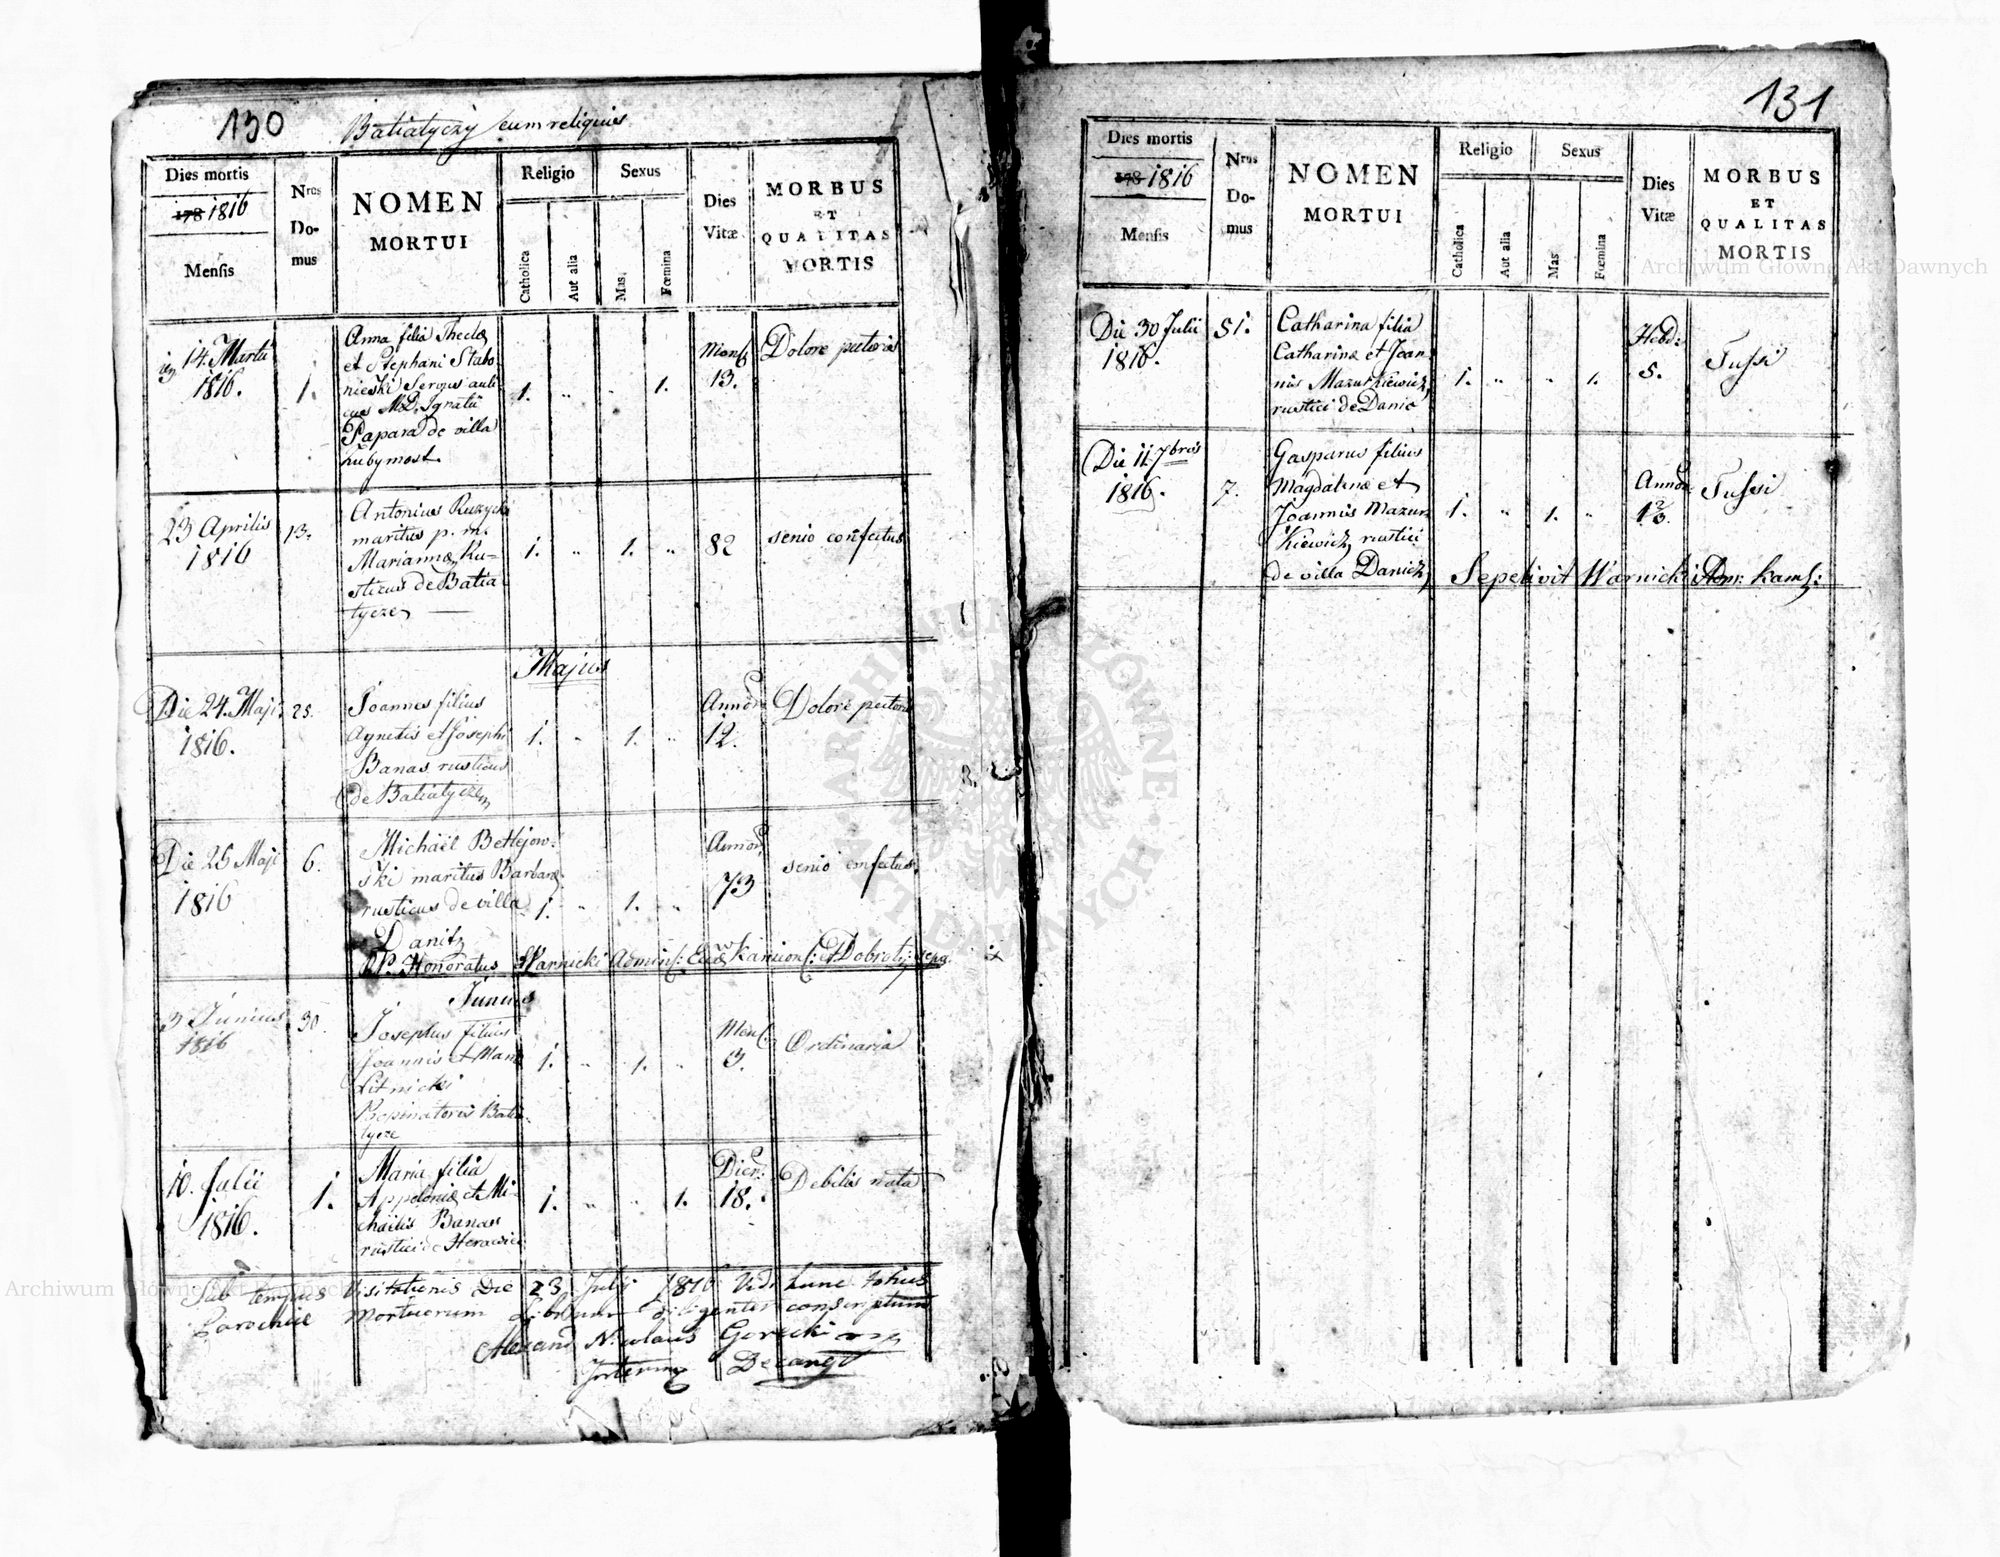 130 Batiatyczy cum reliquis
Dies mortis
178 1816
Mensis
Nrus Domus
NOMEN
MORTUI
Religio
Catholica
Aut alia
Sexus
Mas
Fœmina
Dies
Vitæ
MORBUS
ET
QUALITAS
MORTIS
14. Martii
1816.
1.
Anna filia Theclæ
et Stephani Stabo-
nieski Servus auli
cus M.D. Ignatii
Papara de villa
Lubymost.
1. " " 1.
Mens:
13.
Dolore pectoris
23 Aprilis
1816
13.
Antonius Ruzycki
maritus p. m.
Mariannæ Ru-
sticus de Batia
tycze
1. " 1. "
82
senio confectus
Majus
Die 24. Maji
1816.
25.
Joannes filius
Agnetis et Josephi
Banas rusticus
de Batiatycze
1. " 1. "
Annor:
12.
Dolore pectoris
Die 25 Maji
1816
6.
Michaël Betlejow-
ski maritus Barbaræ
rusticus de villa
Danitz
1. " 1. "
Annor:
73
senio confectus.
Honoratus Warnicki Admins: Kamion: et Dobrot:
Junius
3 Junius
1816
30.
Josephus filius
Joannis et Mar
Litnicki
Propinatoris Batia-
tycze
1. " 1. "
Mens:
3.
Ordinaria
10. Julii
1816.
1.
Maria filia
Appoloniæ et Mi-
chaëlis Banas
rustici de
1. " " 1.
Dier:
18.
Debilis nata
Sub tempus Visitationis Die 23 July 1816 Vidi hunc totius
Parochiæ Mortuorum Librum diligenter conscriptum
Nicolaus Gorecki
131
Dies mortis
178 1816
Mensis
Nrus Domus
NOMEN
MORTUI
Religio
Catholica
Aut alia
Sexus
Mas
Fœmina
Dies
Vitæ
MORBUS
ET
QUALITAS
MORTIS
Die 30 Julii
1816.
51.
Catharina filia
Catharinæ et Joan-
nis Mazurkiewicz
rustici de Danic
1. " " 1.
Hebd:
5.
Tussi
Die 11. 7bris
1816.
7.
Gasparus filius
Magdalenæ et
Joannis Mazur
kiewicz rustici
de villa Danicz
1. " 1. "
Annor:
Tussi
Sepelivit Warnicki Adm: Kams:
Archiwum Główne Akt Dawnych
Archiwum Główne Akt Dawnych
ARCHIWUM GŁÓWNE AKT DAWNYCH